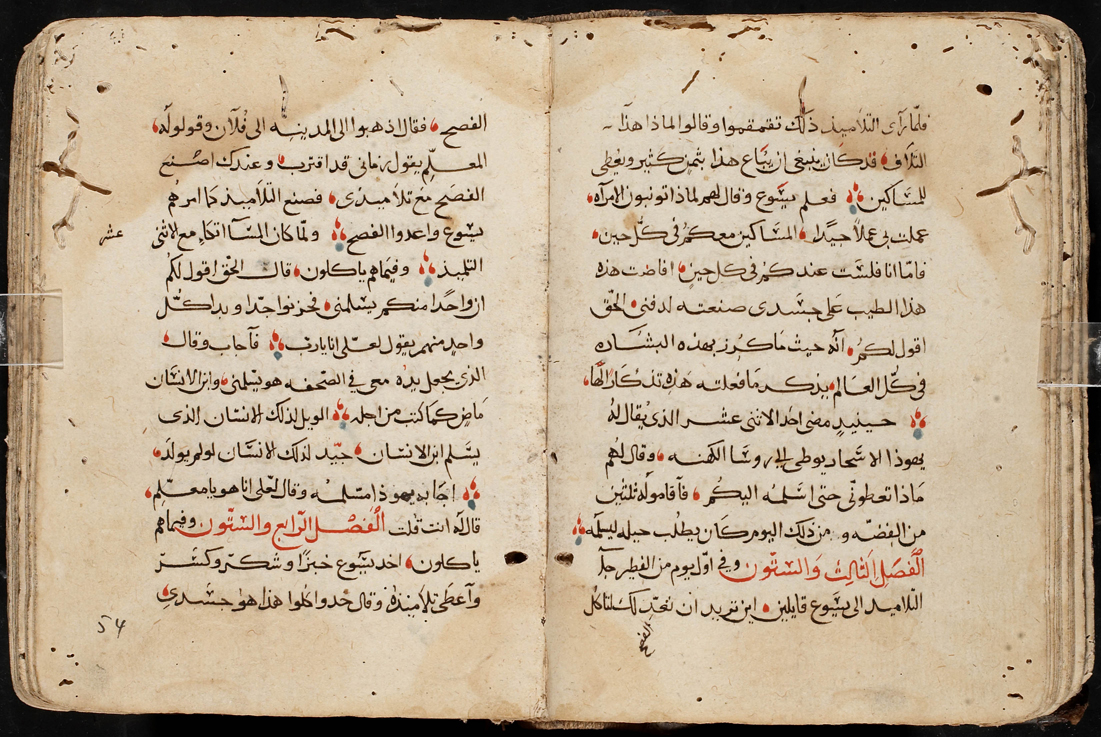 فلمّا رآى التلاميذ ذلك تقمقموا وقالوا لماذا هذا
التلاف قد كان ينبغى ان يباع هذا بثمن كثير ويعطى
للمساكين فعلم يسوع وقال لهم لماذا تونبون الامرآه
عملت بى عملاً جيّدا المساكين معكم فى كلّ حين
فامّا انا فلست عندكم فى كل حين افاضت هذه
هذا الطيب على جسدى صنعته لدفنى الحق
اقول لكم انّه حيث ما كرز بهذه البشاره
فى كلّ العالم يذكر ما فعلته هذه تذكارًا لها
حينيدٍ مضى احد الاثنى عشر الذى يقال له
يهوذا الاسخاريوطى الى روسا الكهنه وقال لهم
ماذا تعطونى حتى اسلمه اليكم فآقاموا له ثلثين
من الفضّه ومن ذلك اليوم كان يطلب حيله ليسلمه
الفصل الثالث والستّون وفى اوّل يوم من الفطير جآ
التلاميد الى يسوع قايلين اين تريد ان نعدّ لك لتاكل
الفصح
الفصح فقال اذهبوا الى المدينه الى فلان وقولوا له
المعلّم يقول زمانى قد اقترب وعندك اصنع
الفصح مع تلاميدى فصنع التلاميذ كما امرهم
يسوع واعدوا الفصح ولمّا كان المسآ اتكا مع الاثنى
عشر
التلميذ وفيماهم ياكلون قال الحقّ اقول لكم
ان واحدًا منكم يسلمنى فحزنوا جدّا وبدا كلّ
واحدٍ منهم يقول لعلّى انا يارب فآجاب وقال
الذى يجعل يده معى فى الصحفه هو يسلمنى وابن الانسان
ماضٍ كما كتب من اجله الويل لذلك الانسان الذى
يسلم ابن الانسان جيّد لذلك الانسان لو لم يولد
اجابه يهوذا مسلمه وقال لعلى انا هو يا معلّم
قال له انت قلت الفصل الرابع والستّون وفيماهم
ياكلون اخد يسوع خبزًا وشكر وكسر
وآعطى تلاميذه وقال خدوا كلوا هذا هو جسدى
54